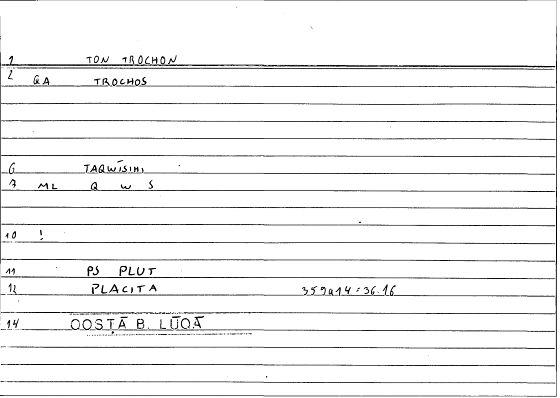 1 TON TROCHON
2 GA TROCHOS
6 TAQWĪSIHI
7 ML Q W S
10 !
11 PS PLUT
12 PLACITA 359a14=36.16
14 QOSṬĀ B. LŪQĀ